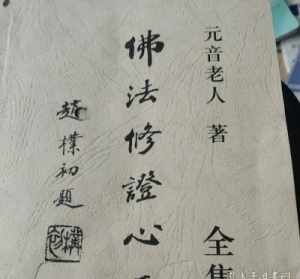 元音老人 著
全集
佛法修證心
趙樸初題